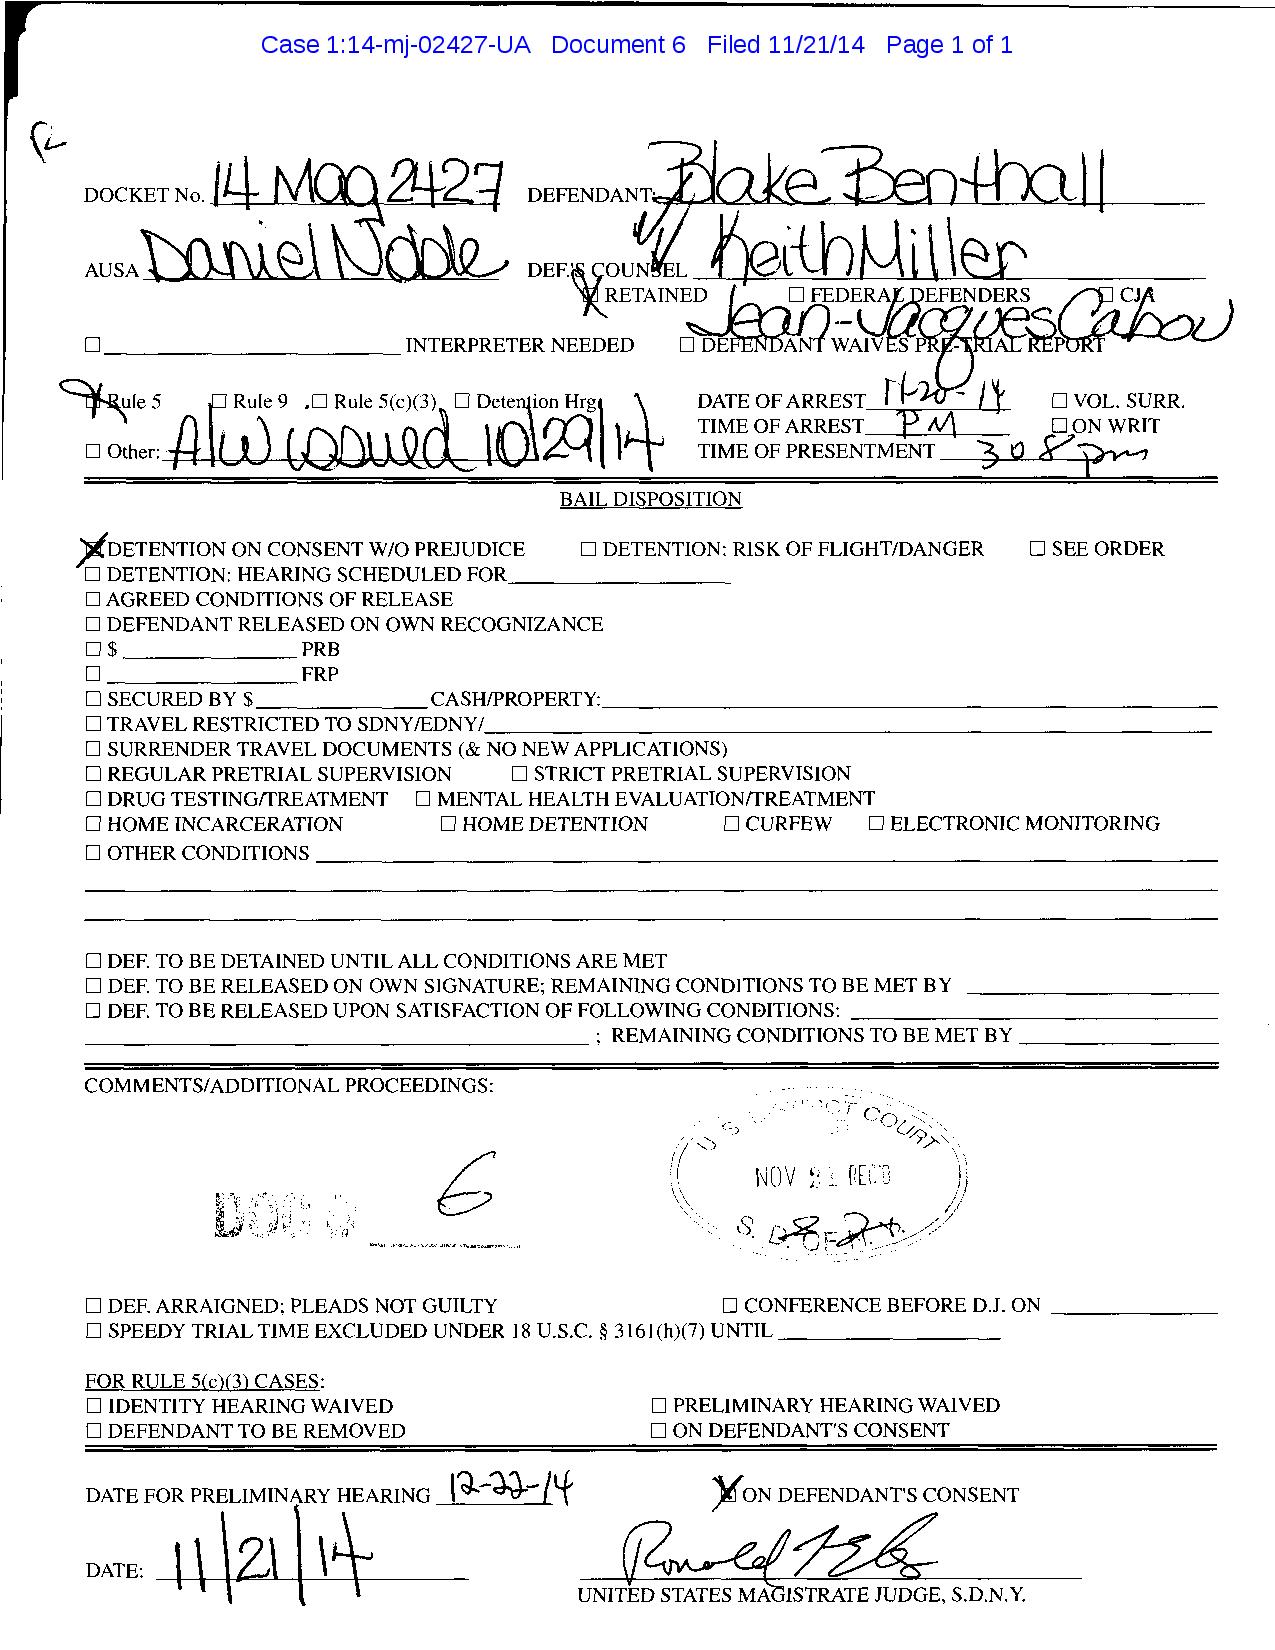 Case 1:14-mj-02427-UA Document 6 Filed 11/21/14 Page 1 of 1
DOCKET No. 14 Mag 2427 DEFENDANT: Blake Benthall
AUSA Daniel Noble DEF.'S COUNSEL Keith Miller
☒ RETAINED ☐ FEDERAL DEFENDERS ☐ CJA
Jean-Jacques Cabou
☐ INTERPRETER NEEDED ☐ DEFENDANT WAIVES PRE-TRIAL REPORT
☒ Rule 5 ☐ Rule 9 ☐ Rule 5(c)(3) ☐ Detention Hrg. DATE OF ARREST 11-20-14 ☐ VOL. SURR.
TIME OF ARREST PM ☐ ON WRIT
☐ Other: A/W issued 10/29/14 TIME OF PRESENTMENT 308 pm
BAIL DISPOSITION
☒ DETENTION ON CONSENT W/O PREJUDICE ☐ DETENTION: RISK OF FLIGHT/DANGER ☐ SEE ORDER
☐ DETENTION: HEARING SCHEDULED FOR
☐ AGREED CONDITIONS OF RELEASE
☐ DEFENDANT RELEASED ON OWN RECOGNIZANCE
☐ $ PRB
☐ FRP
☐ SECURED BY $ CASH/PROPERTY:
☐ TRAVEL RESTRICTED TO SDNY/EDNY/
☐ SURRENDER TRAVEL DOCUMENTS (& NO NEW APPLICATIONS)
☐ REGULAR PRETRIAL SUPERVISION ☐ STRICT PRETRIAL SUPERVISION
☐ DRUG TESTING/TREATMENT ☐ MENTAL HEALTH EVALUATION/TREATMENT
☐ HOME INCARCERATION ☐ HOME DETENTION ☐ CURFEW ☐ ELECTRONIC MONITORING
☐ OTHER CONDITIONS
☐ DEF. TO BE DETAINED UNTIL ALL CONDITIONS ARE MET
☐ DEF. TO BE RELEASED ON OWN SIGNATURE; REMAINING CONDITIONS TO BE MET BY
☐ DEF. TO BE RELEASED UPON SATISFACTION OF FOLLOWING CONDITIONS:
; REMAINING CONDITIONS TO BE MET BY
COMMENTS/ADDITIONAL PROCEEDINGS:
U.S. DISTRICT COURT
NOV 21 REC'D
S. D. OF N.Y.
DOC 6
☐ DEF. ARRAIGNED; PLEADS NOT GUILTY ☐ CONFERENCE BEFORE D.J. ON
☐ SPEEDY TRIAL TIME EXCLUDED UNDER 18 U.S.C. § 3161(h)(7) UNTIL
FOR RULE 5(c)(3) CASES:
☐ IDENTITY HEARING WAIVED ☐ PRELIMINARY HEARING WAIVED
☐ DEFENDANT TO BE REMOVED ☐ ON DEFENDANT'S CONSENT
DATE FOR PRELIMINARY HEARING 12-22-14 ☒ ON DEFENDANT'S CONSENT
DATE: 11/21/14
UNITED STATES MAGISTRATE JUDGE, S.D.N.Y.